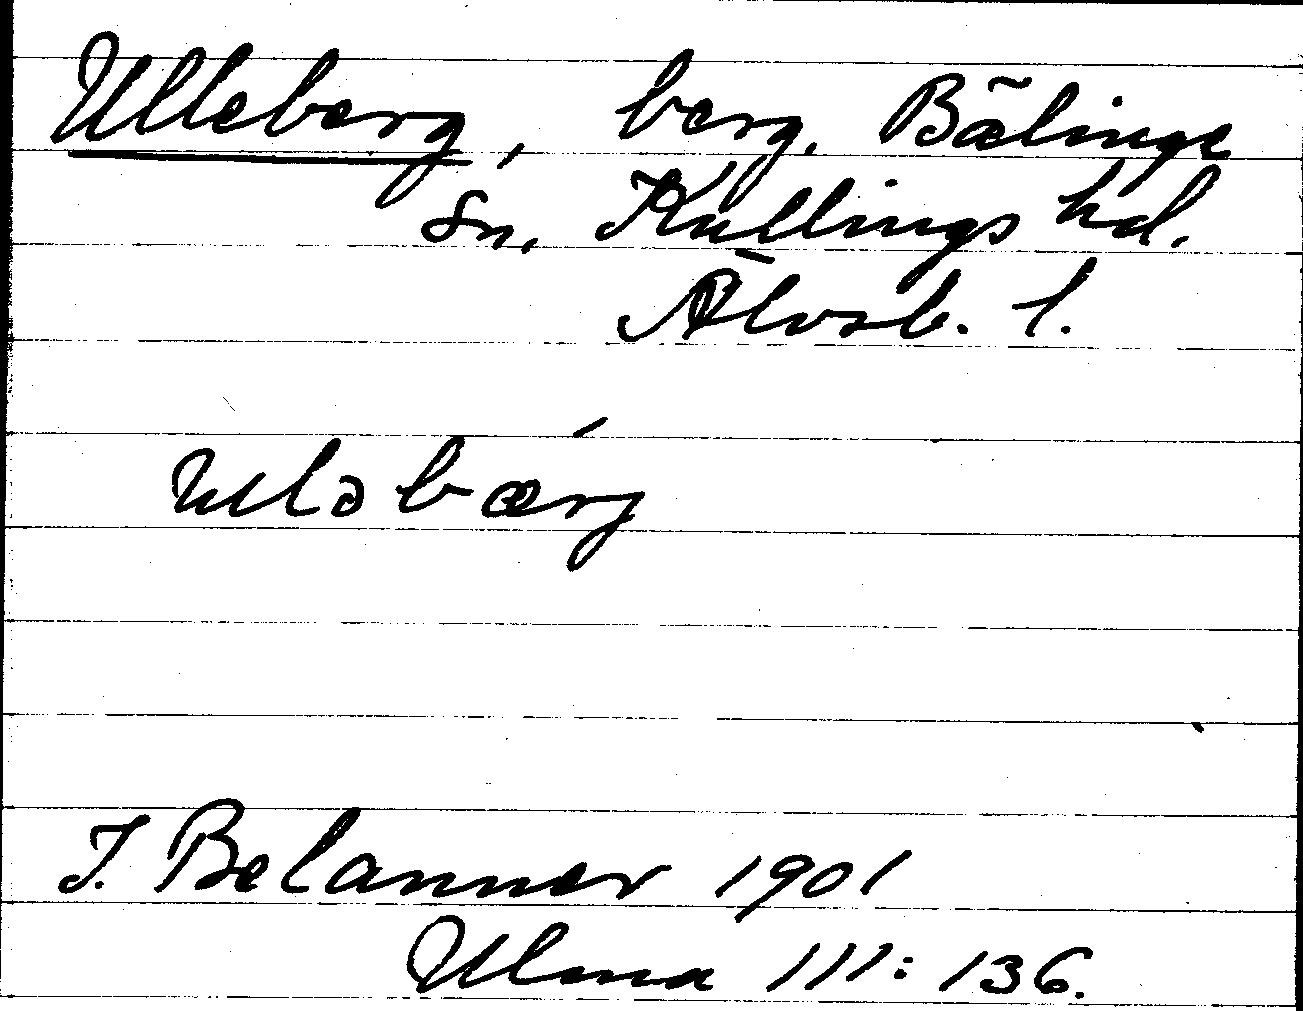 Ulleberg, berg. Bälinge
Sn. Kullings hd.
Älvsb. l.
ulləbærj
J. Belanner 1901
Ulma 111: 136.